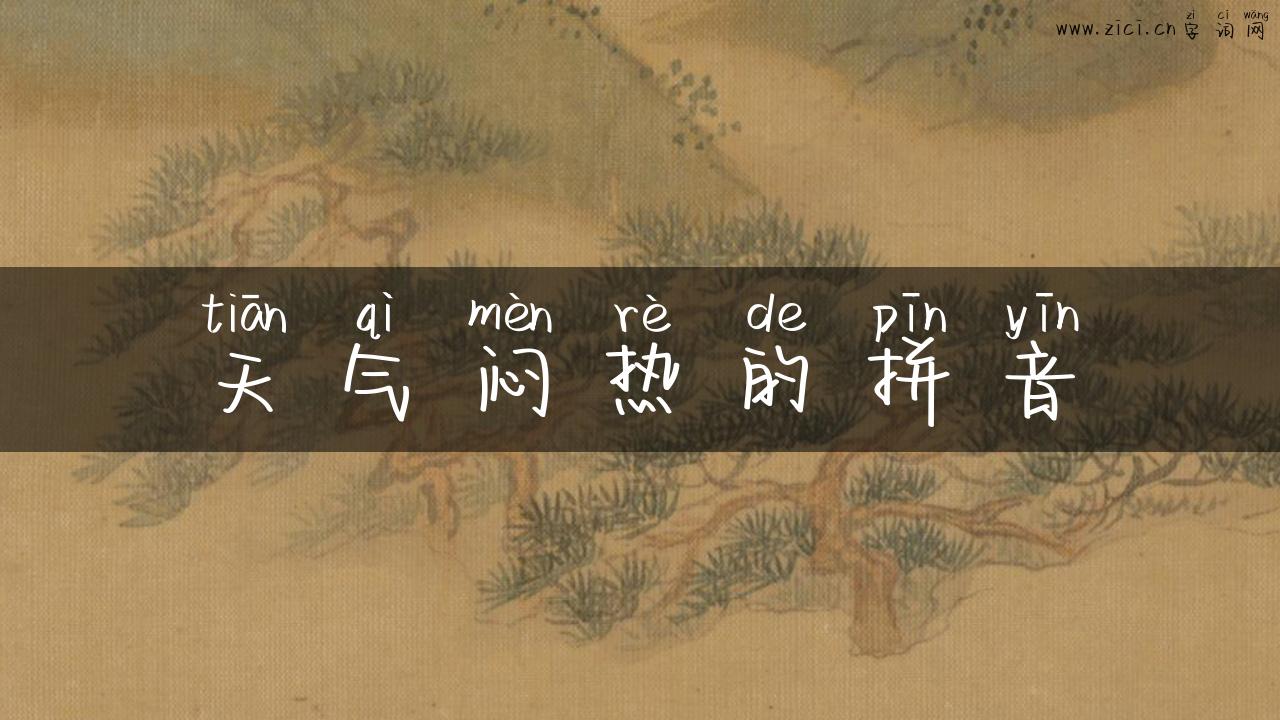 zì cí wǎng
www.zici.cn 字词网
tiān qì mèn rè de pīn yīn
天气闷热的拼音